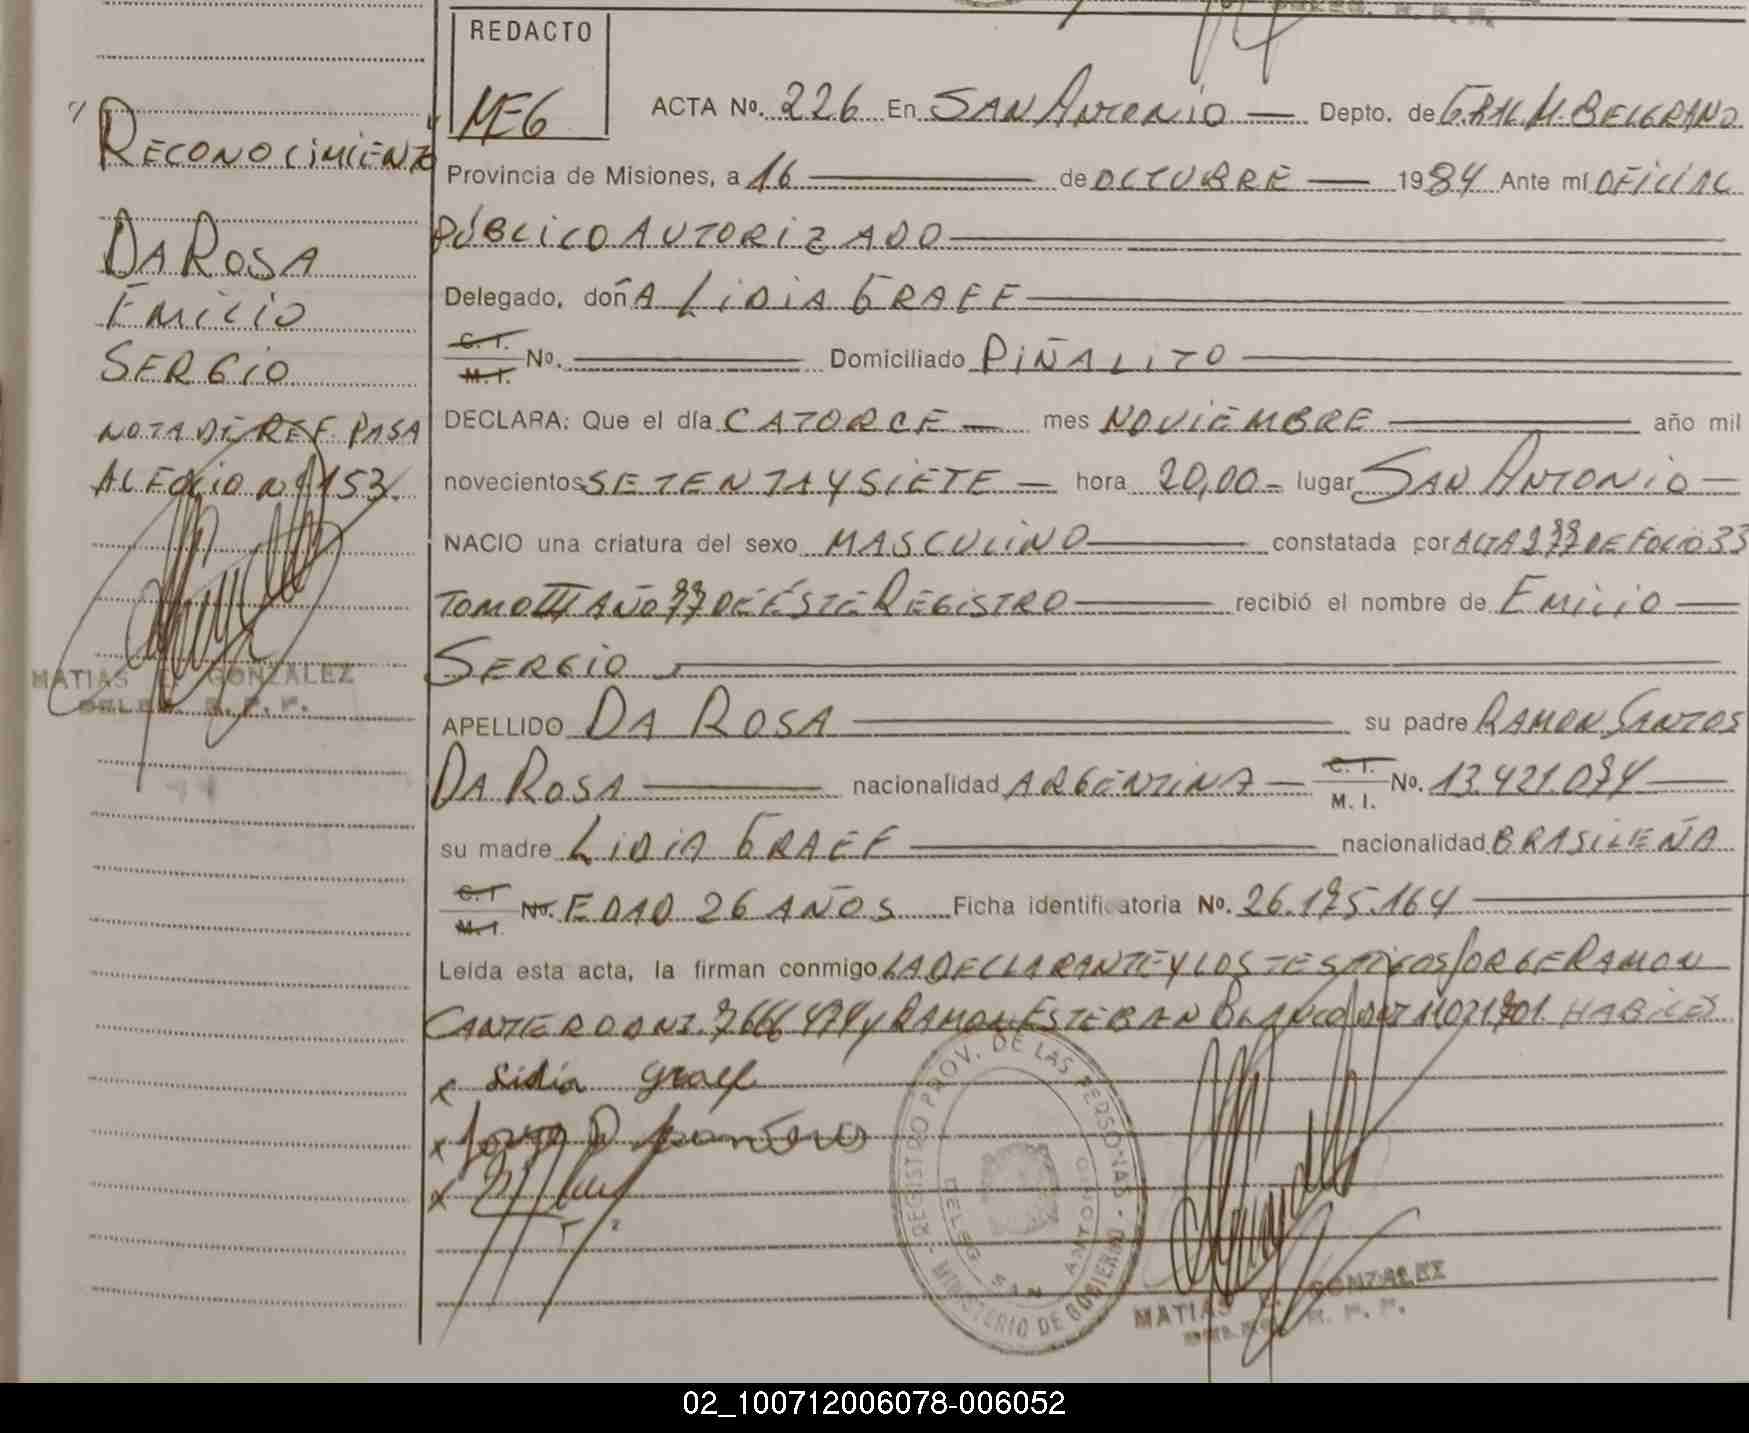 REDACTO
MEG
ACTA No. 226 En SAN ANTONIO — Depto. de GRAL. M. BELGRANO
Provincia de Misiones, a 16 — de OCTUBRE — 1984 Ante mí OFICIAL
PÚBLICO AUTORIZADO
Delegado, doñA LIDIA GRAEF
C. I. M. I. No. — Domiciliado PIÑALITO
DECLARA: Que el día CATORCE — mes NOVIEMBRE — año mil
novecientos SETENTA Y SIETE — hora 20,00 — lugar SAN ANTONIO —
NACIO una criatura del sexo MASCULINO — constatada por ACTA 277 DE FOLIO 33
TOMO III AÑO 77 DE ÉSTE REGISTRO — recibió el nombre de EMILIO —
SERGIO
APELLIDO DA ROSA — su padre RAMON SANTOS
DA ROSA — nacionalidad ARGENTINA — C. I. M. I. No. 13.421.074
su madre LIDIA GRAEF — nacionalidad BRASILEÑA
C. I. M. I. No. EDAD 26 AÑOS Ficha identificatoria No. 26.175.164
Leída esta acta, la firman conmigo LA DECLARANTE Y LOS TESTIGOS JORGE RAMON
CANTERO DNI. 7.666.474 y RAMON ESTEBAN BLANCO DNI 11.071.701. HABILES
x Lidia Graef
x Jorge R Cantero
x
REGISTRO PROV. DE LAS PERSONAS - MINISTERIO DE GOBIERNO -
DELEG. SAN ANTONIO
MATIAS GONZALEZ
R. P. P.
"RECONOCIMIENTO"
DA ROSA
EMILIO
SERGIO
NOTA DE REF. PASA
AL FOLIO Nº 153.
MATIAS GONZALEZ
DELEG. R. P. P.
02_100712006078-006052